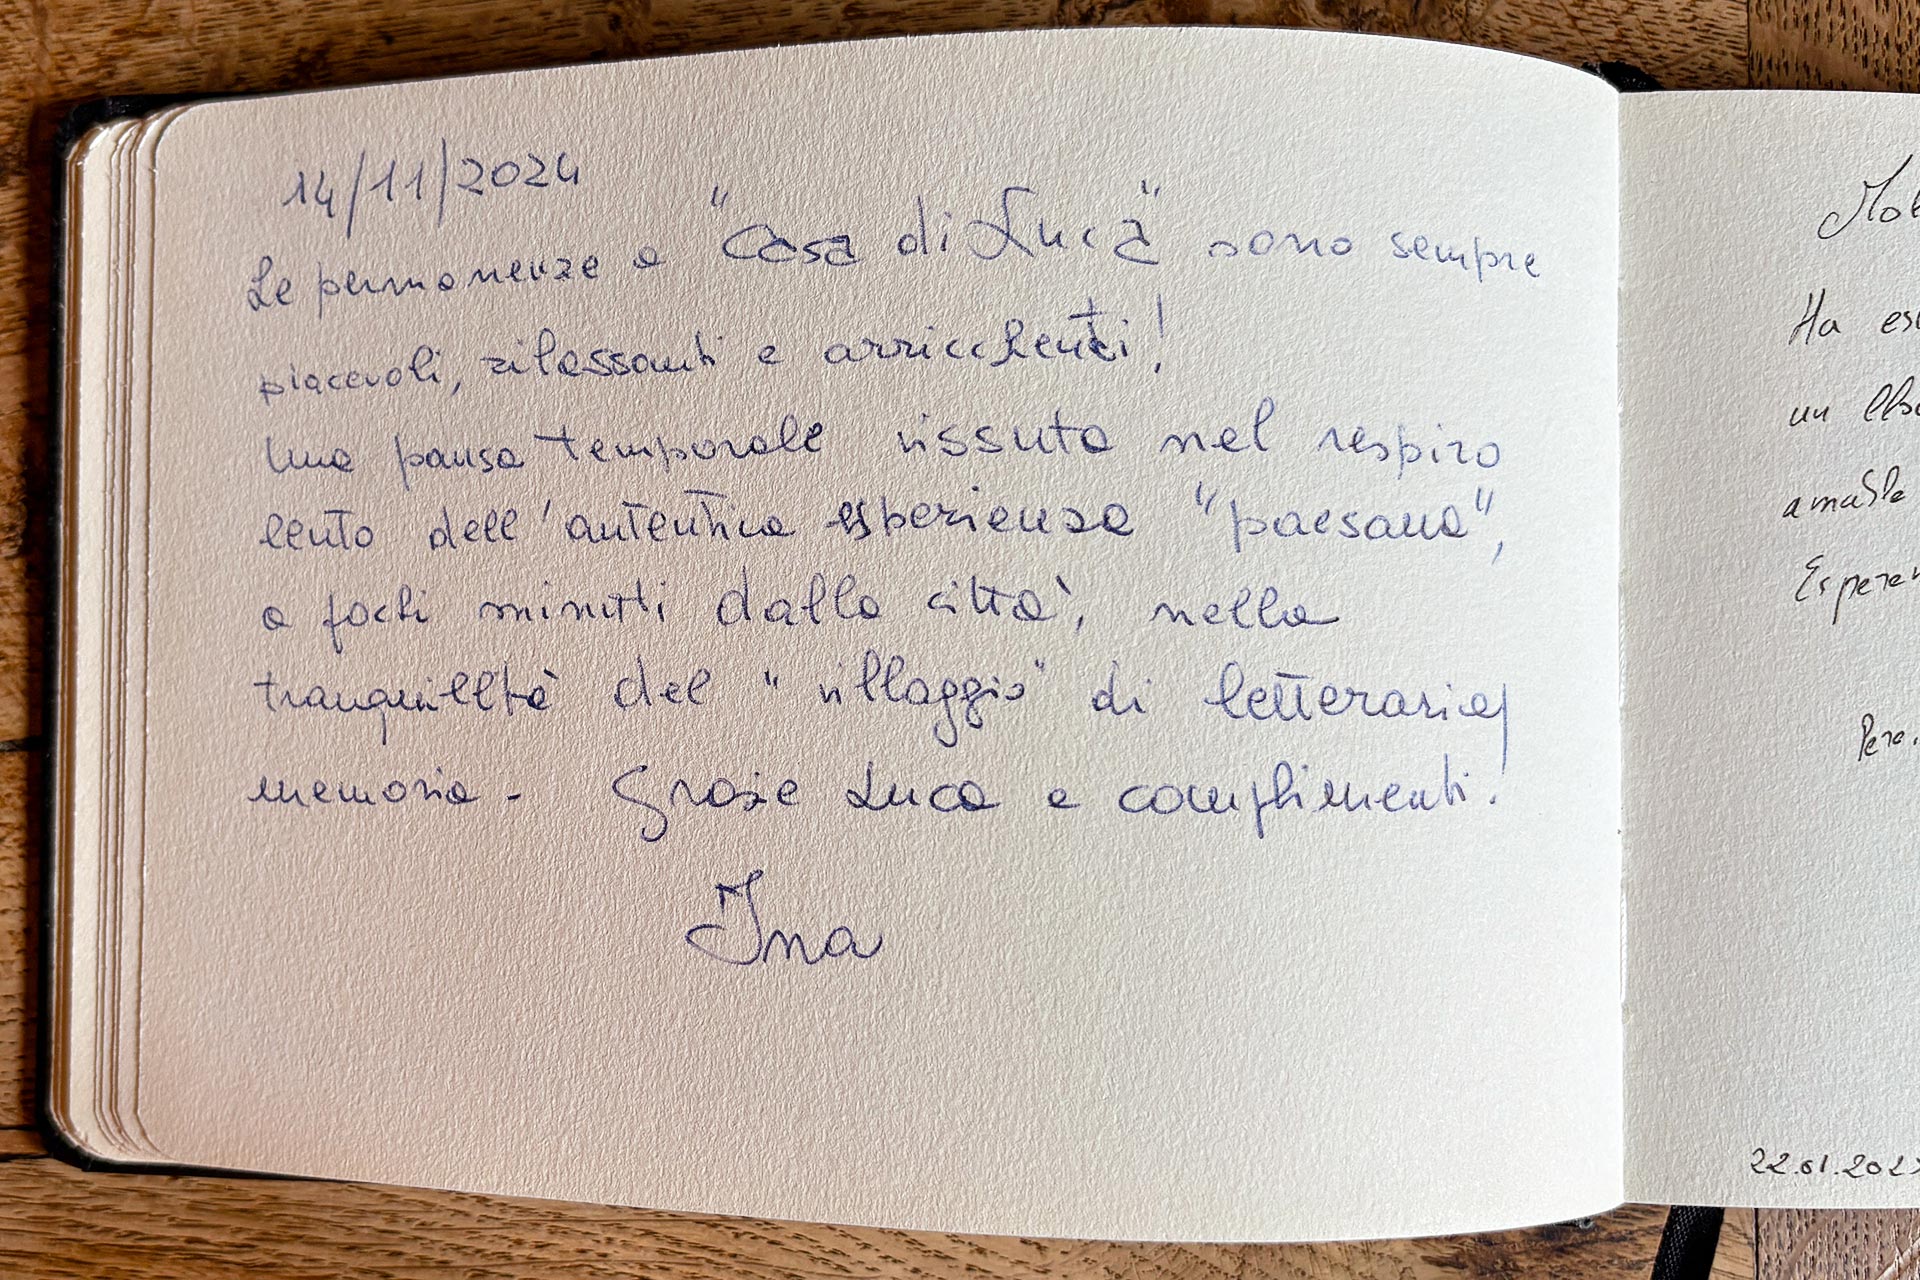 14/11/2024
Le permanenze a "Casa di Luca" sono sempre
piacevoli, rilassanti e arricchenti!
Una pausa temporale vissuta nel respiro
lento dell'autentica esperienza "paesana",
a pochi minuti dalla città, nella
tranquillità del "villaggio" di letteraria
memoria - Grazie Luca e complimenti!
Ina
Ha
un
amable
22.01.202